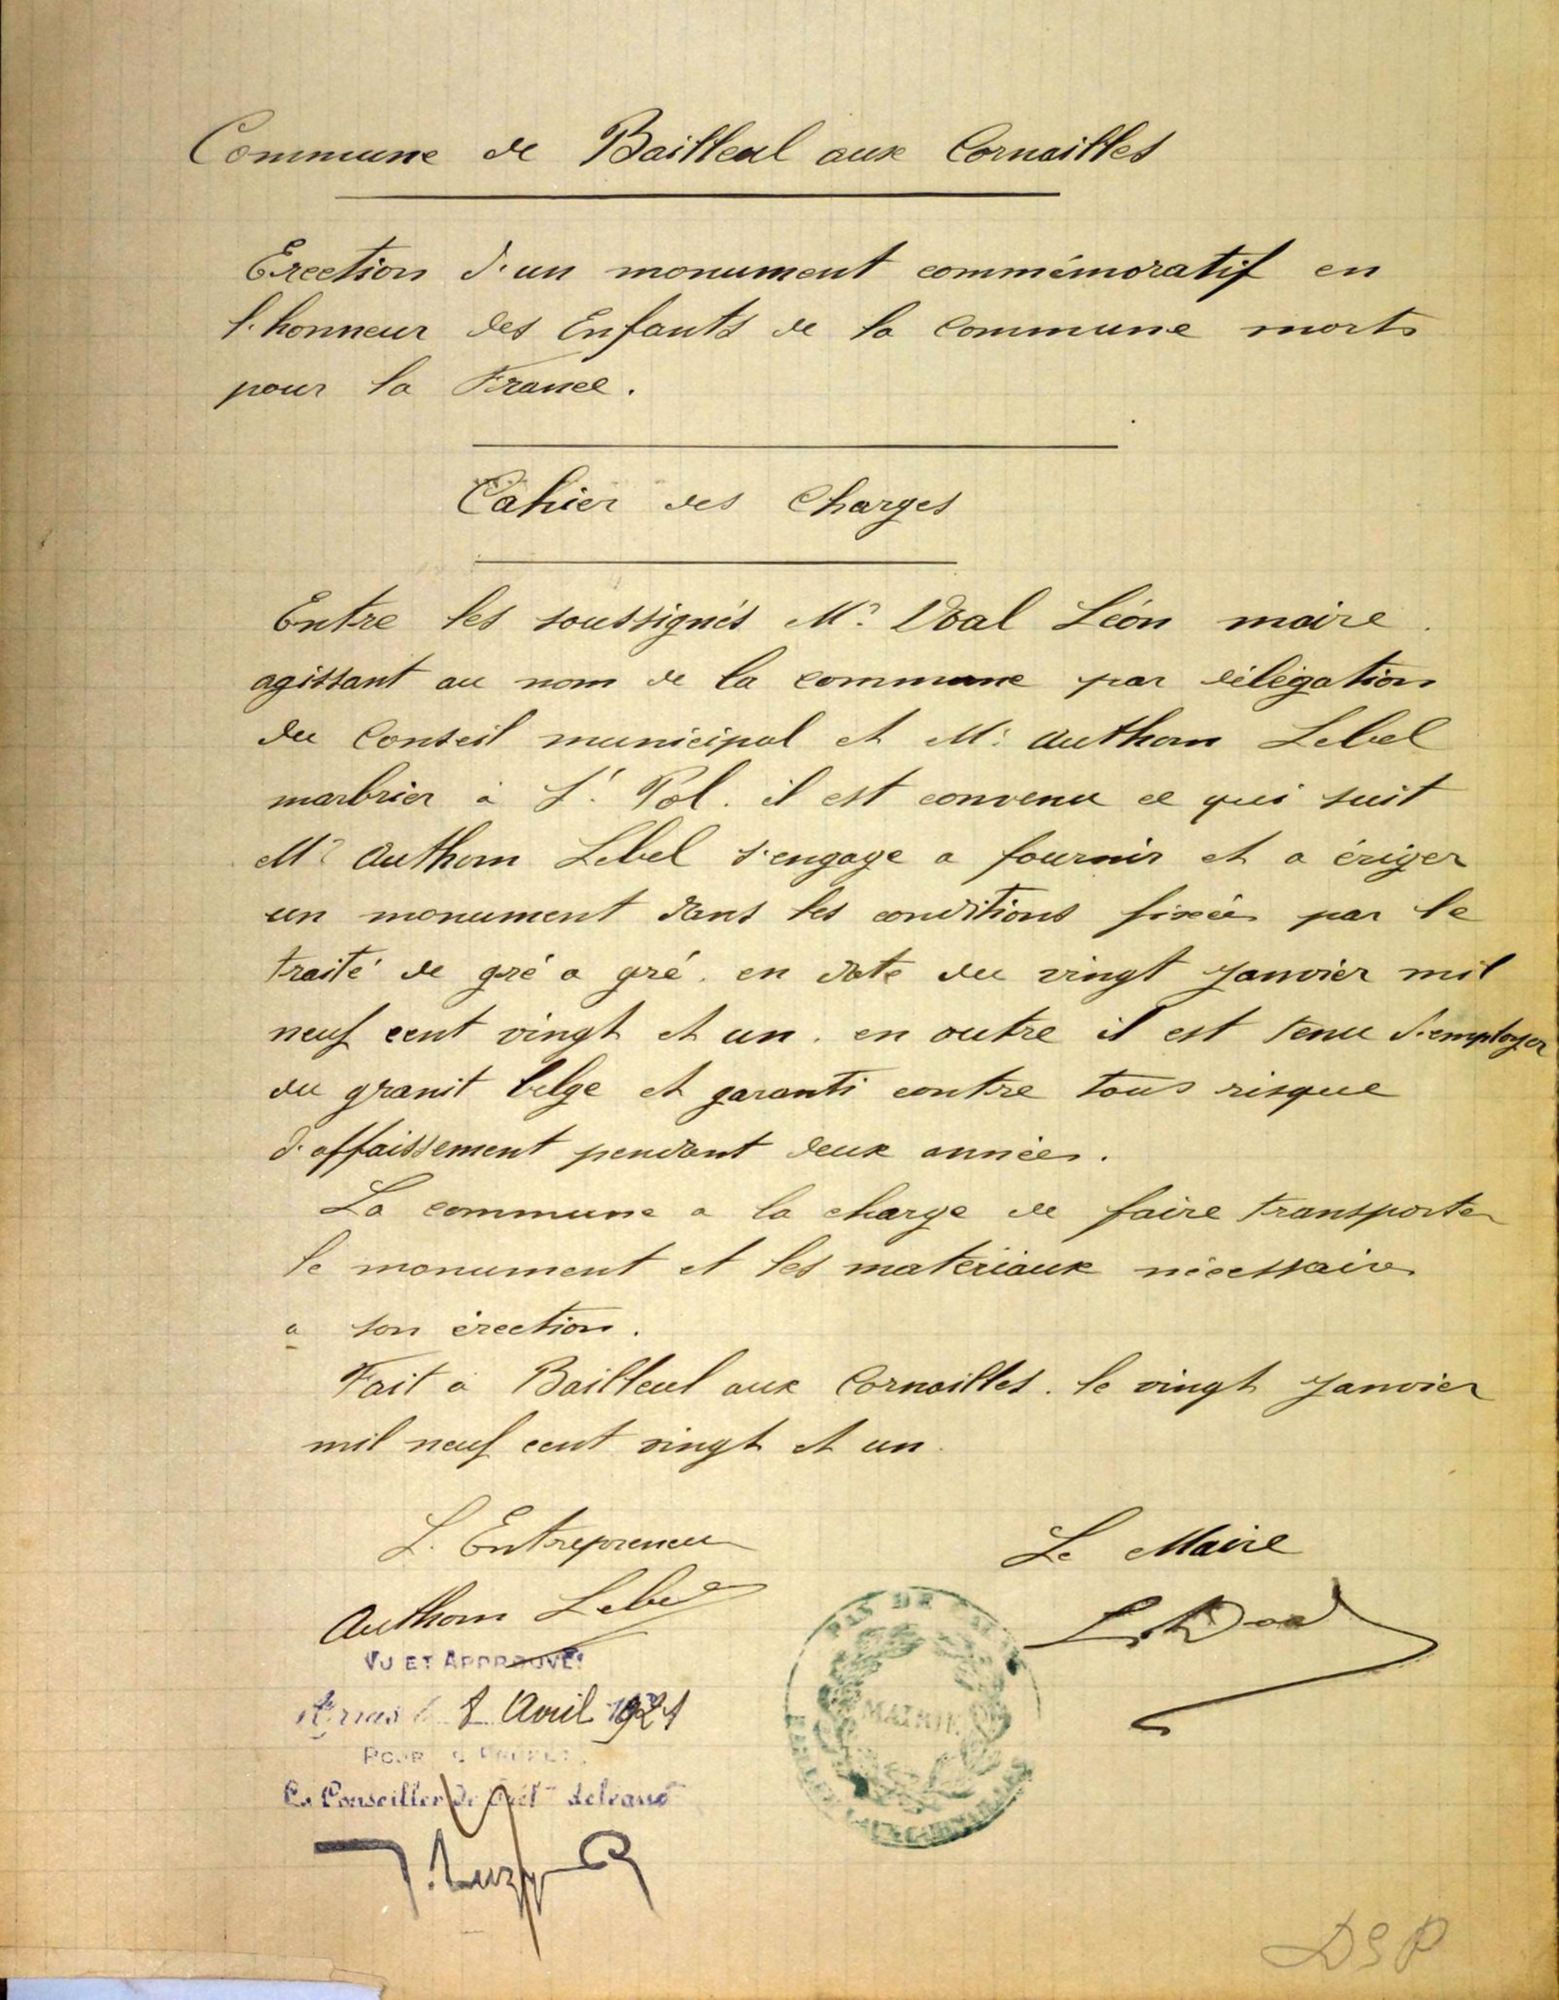 Commune de Bailleul aux Cornailles
Erection d'un monument commémoratif en
l'honneur des Enfants de la Commune morts
pour la France.
Cahier des Charges
Entre les soussignés Mr Doal Léon maire
agissant au nom de la commune par délégation
du Conseil municipal et Mr Authom Lebel
marbrier à St Pol. il est convenu ce qui suit
Mr Authom Lebel s'engage a fournir et a ériger
un monument dans les conditions fixées par le
traité de gré a gré. en date du vingt Janvier mil
neuf cent vingt et un. en outre il est tenu d'employer
du granit belge et garanti contre tous risque
d'affaissement pendant deux années.
La commune a la charge de faire transporter
le monument et les matériaux nécessaires
a son érection.
Fait à Bailleul aux Cornailles. le vingt Janvier
mil neuf cent vingt et un.
L'Entrepreneur
Le Maire
Authom Lebel
L. Doal
VU ET APPROUVÉ:
Arras le 8 Avril 1921
POUR LE PRÉFET:
Le Conseiller de Préf délégué
PAS DE CALAIS
MAIRIE DE
BAILLEUL AUX CORNAILLES
DGP